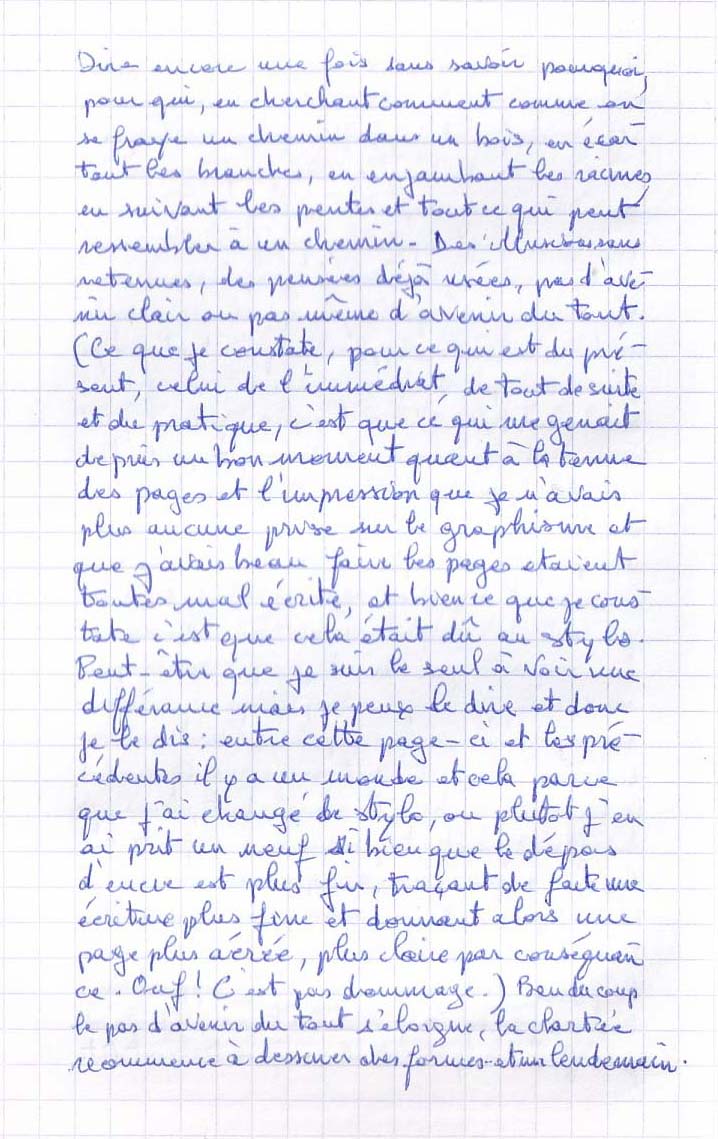 Dire encore une fois sans savoir pourquoi,
pour qui, en cherchant comment comme on
se fraye un chemin dans un bois, en écar-
tant les branches, en enjambant les racines,
en suivant les pentes et tout ce qui peut
ressembler à un chemin - Des illusions sans
retenues, des pensées déjà usées, pas d'ave-
nir clair ou pas même d'avenir du tout.
(Ce que je constate, pour ce qui est du pré-
sent, celui de l'immédiat, de tout de suite
et du pratique, c'est que ce qui me genait
depuis un bon moment quant à la tenue
des pages et l'impression que je n'avais
plus aucune prise sur le graphisme et
que j'avais beau faire les pages etaient
toutes mal écrite, et bien ce que je cons-
tate c'est que cela était dû au stylo.
Peut-être que je suis le seul à voir une
différance mais je peux le dire et donc
je le dis : entre cette page-ci et les pré-
cédentes il y a un monde et cela parce
que j'ai changé de stylo, ou plutot j'en
ai prit un neuf si bien que le dépos
d'encre est plus fin, traçant de fait une
écriture plus fine et donnant alors une
page plus aérée, plus claire par conséquan
ce. Ouf ! C'est pas dommage.) Beaucoup
le pas d'avenir du tout s'éloigne, la clartée
recommence à dessiner des formes et un lendemain.